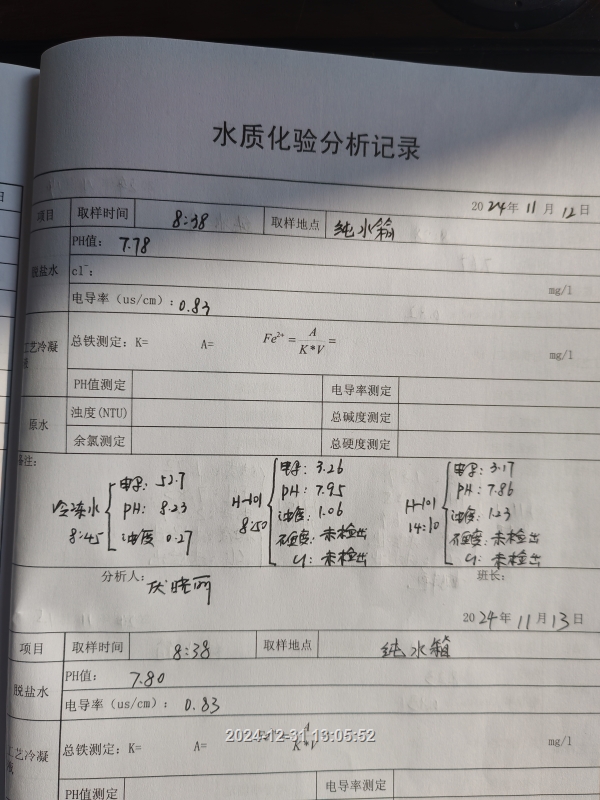 水质化验分析记录
2024年11月12日
项目 取样时间 8:38 取样地点 纯水箱
脱盐水 PH值: 7.78
cl⁻: mg/l
电导率(us/cm): 0.83
工艺冷凝液 总铁测定: K= A= Fe²⁺=A/K*V= mg/l
PH值测定 电导率测定
原水 浊度(NTU) 总碱度测定
余氯测定 总硬度测定
备注:
冷冻水 8:45
电导: 52.7
PH: 8.23
浊度 0.27
H-101 8:50
电导: 3.26
PH: 7.95
浊度: 1.06
硬度: 未检出
cl: 未检出
H-101 14:10
电导: 3.17
PH: 7.86
浊度: 1.23
硬度: 未检出
cl: 未检出
分析人: 晓丽 班长:
2024年11月13日
项目 取样时间 8:38 取样地点 纯水箱
脱盐水 PH值: 7.80
电导率(us/cm): 0.83
工艺冷凝液 总铁测定: K= A= A/K*V mg/l
2024-12-31 13:05:52
PH值测定 电导率测定